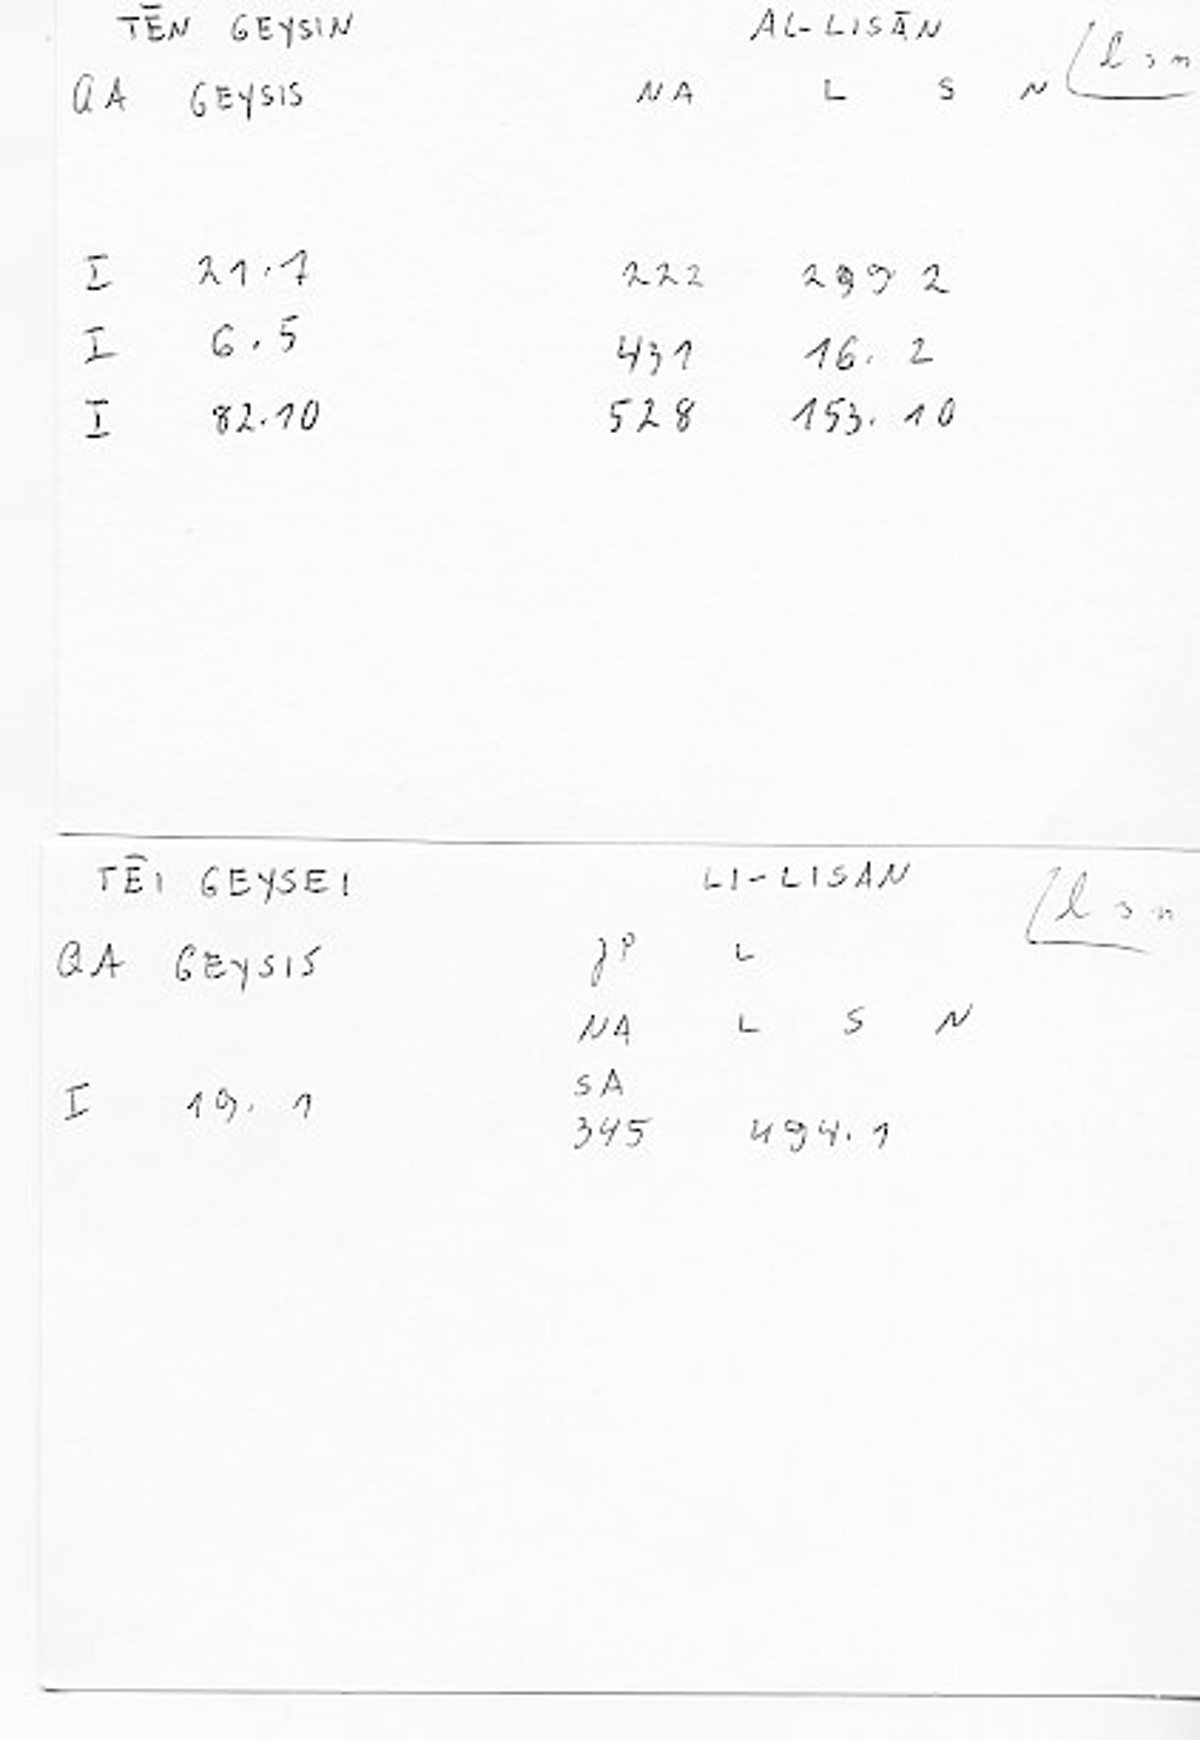 TĒN GEYSIN AL-LISĀN
QA GEYSIS NA L S N lsn
I 21.7 222 299 2
I 6.5 431 16. 2
I 82.10 528 153. 10
TĒI GEYSEI LI-LISAN lsn
QA GEYSIS JP L
NA L S N
SA
I 19. 1 345 494.1